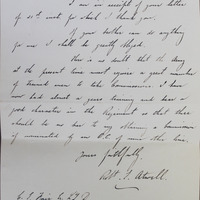 I am in receipt of your letter
of 21st inst for which I thank you.
If your brother can do anything
for me I shall be greatly obliged.
There is no doubt that the Army
at the present time must require a great number
of trained men to take Commissions. I have
now had about a years training and bear a
good character in the Regiment so that there
should be no bar to my obtaining a Commission
if nominated by an O.C. of some other Corps.
Yours faithfully
Robt. S. Atwell.